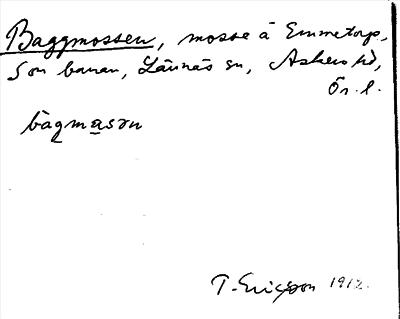 Baggmossen, mosse å Emmetorp,
S om banan, Lännäs sn, Askers hd,
Ör. l.
bàgmasən
T. Ericsson 1912.